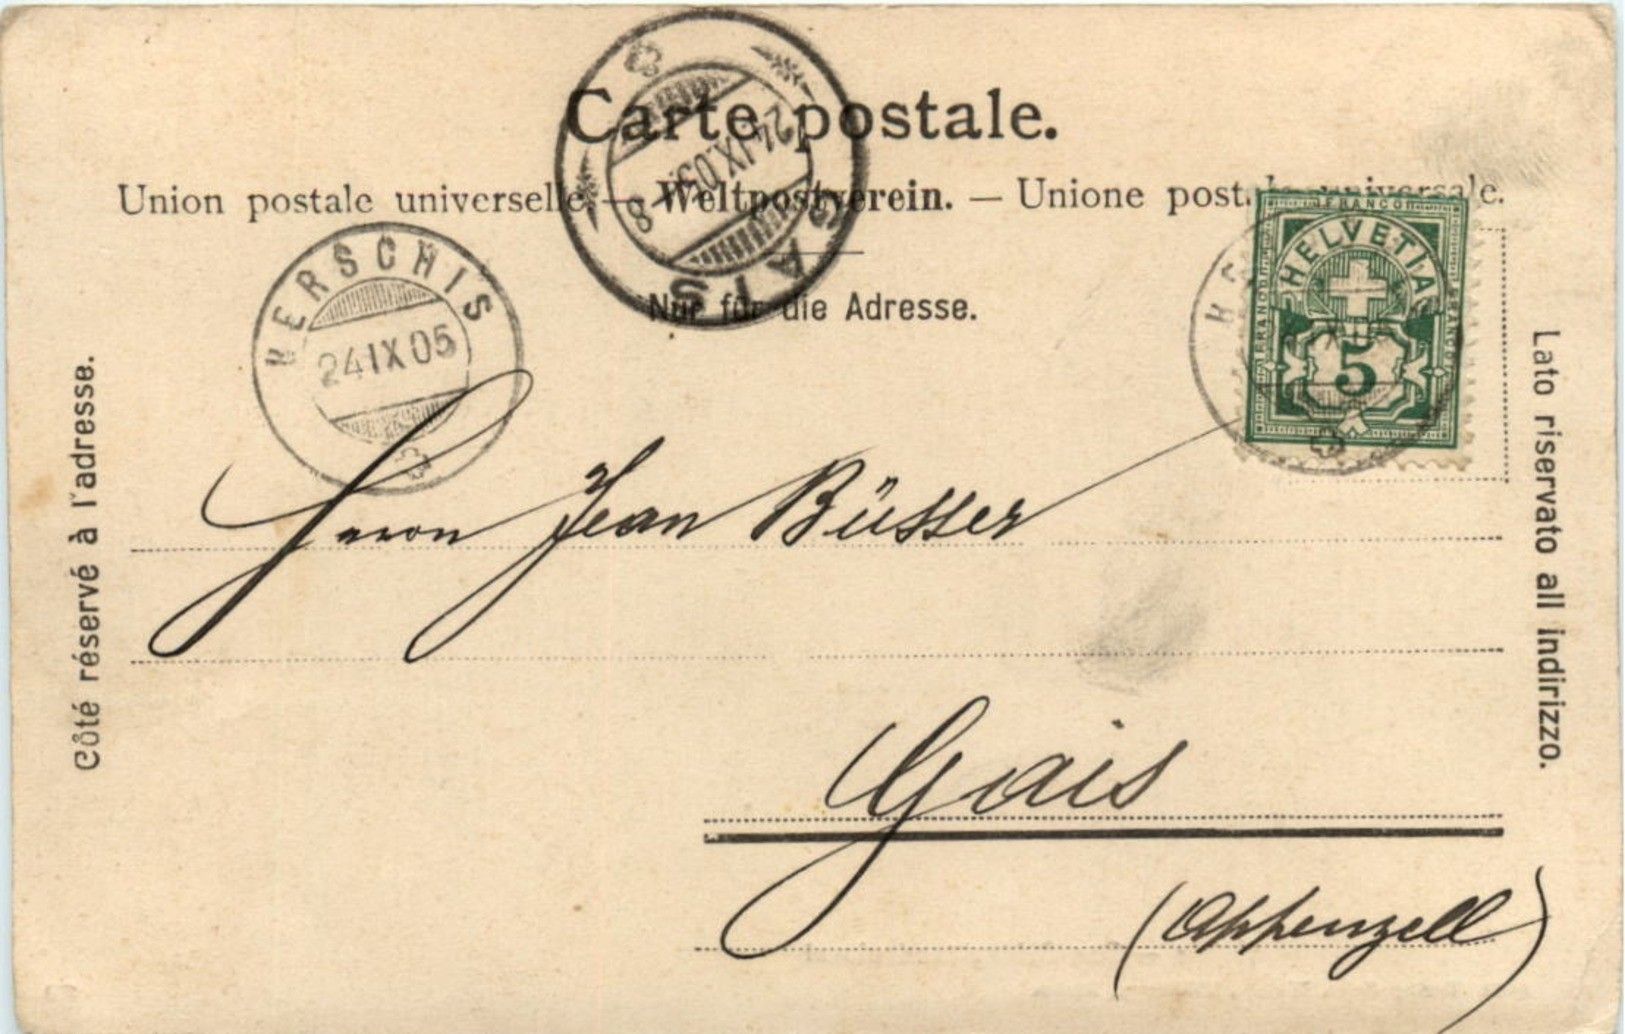 Carte postale.
Union postale universelle. — Weltpostverein. — Unione postale universale.
Nur für die Adresse.
Côté réservé à l'adresse.
Lato riservato all indirizzo.
BERSCHIS
24 IX 05
GAIS
24. IX. 05. 8
FRANCO
HELVETIA
5
Herrn Jean Büsser
Gais
(Appenzell)